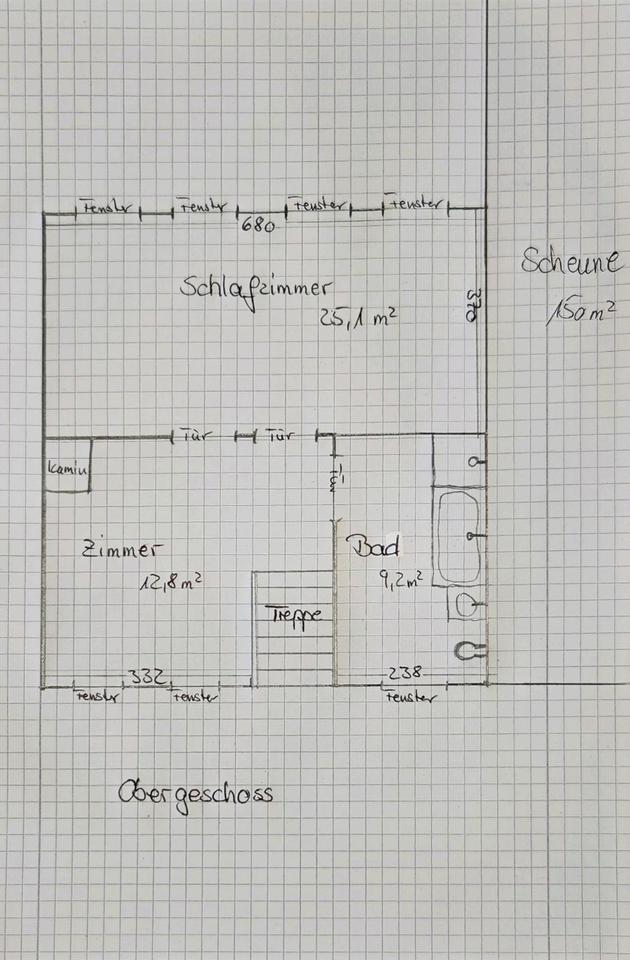 Fenstr Fenstr Fenster Fenster
680
Scheune
Schlafzimmer
370
150 m²
25,1 m²
Tür Tür
Kamin
Tür
Zimmer
Bad
12,8 m²
9,2 m²
Treppe
332
238
Fenstr Fenster Fenster
Obergeschoss